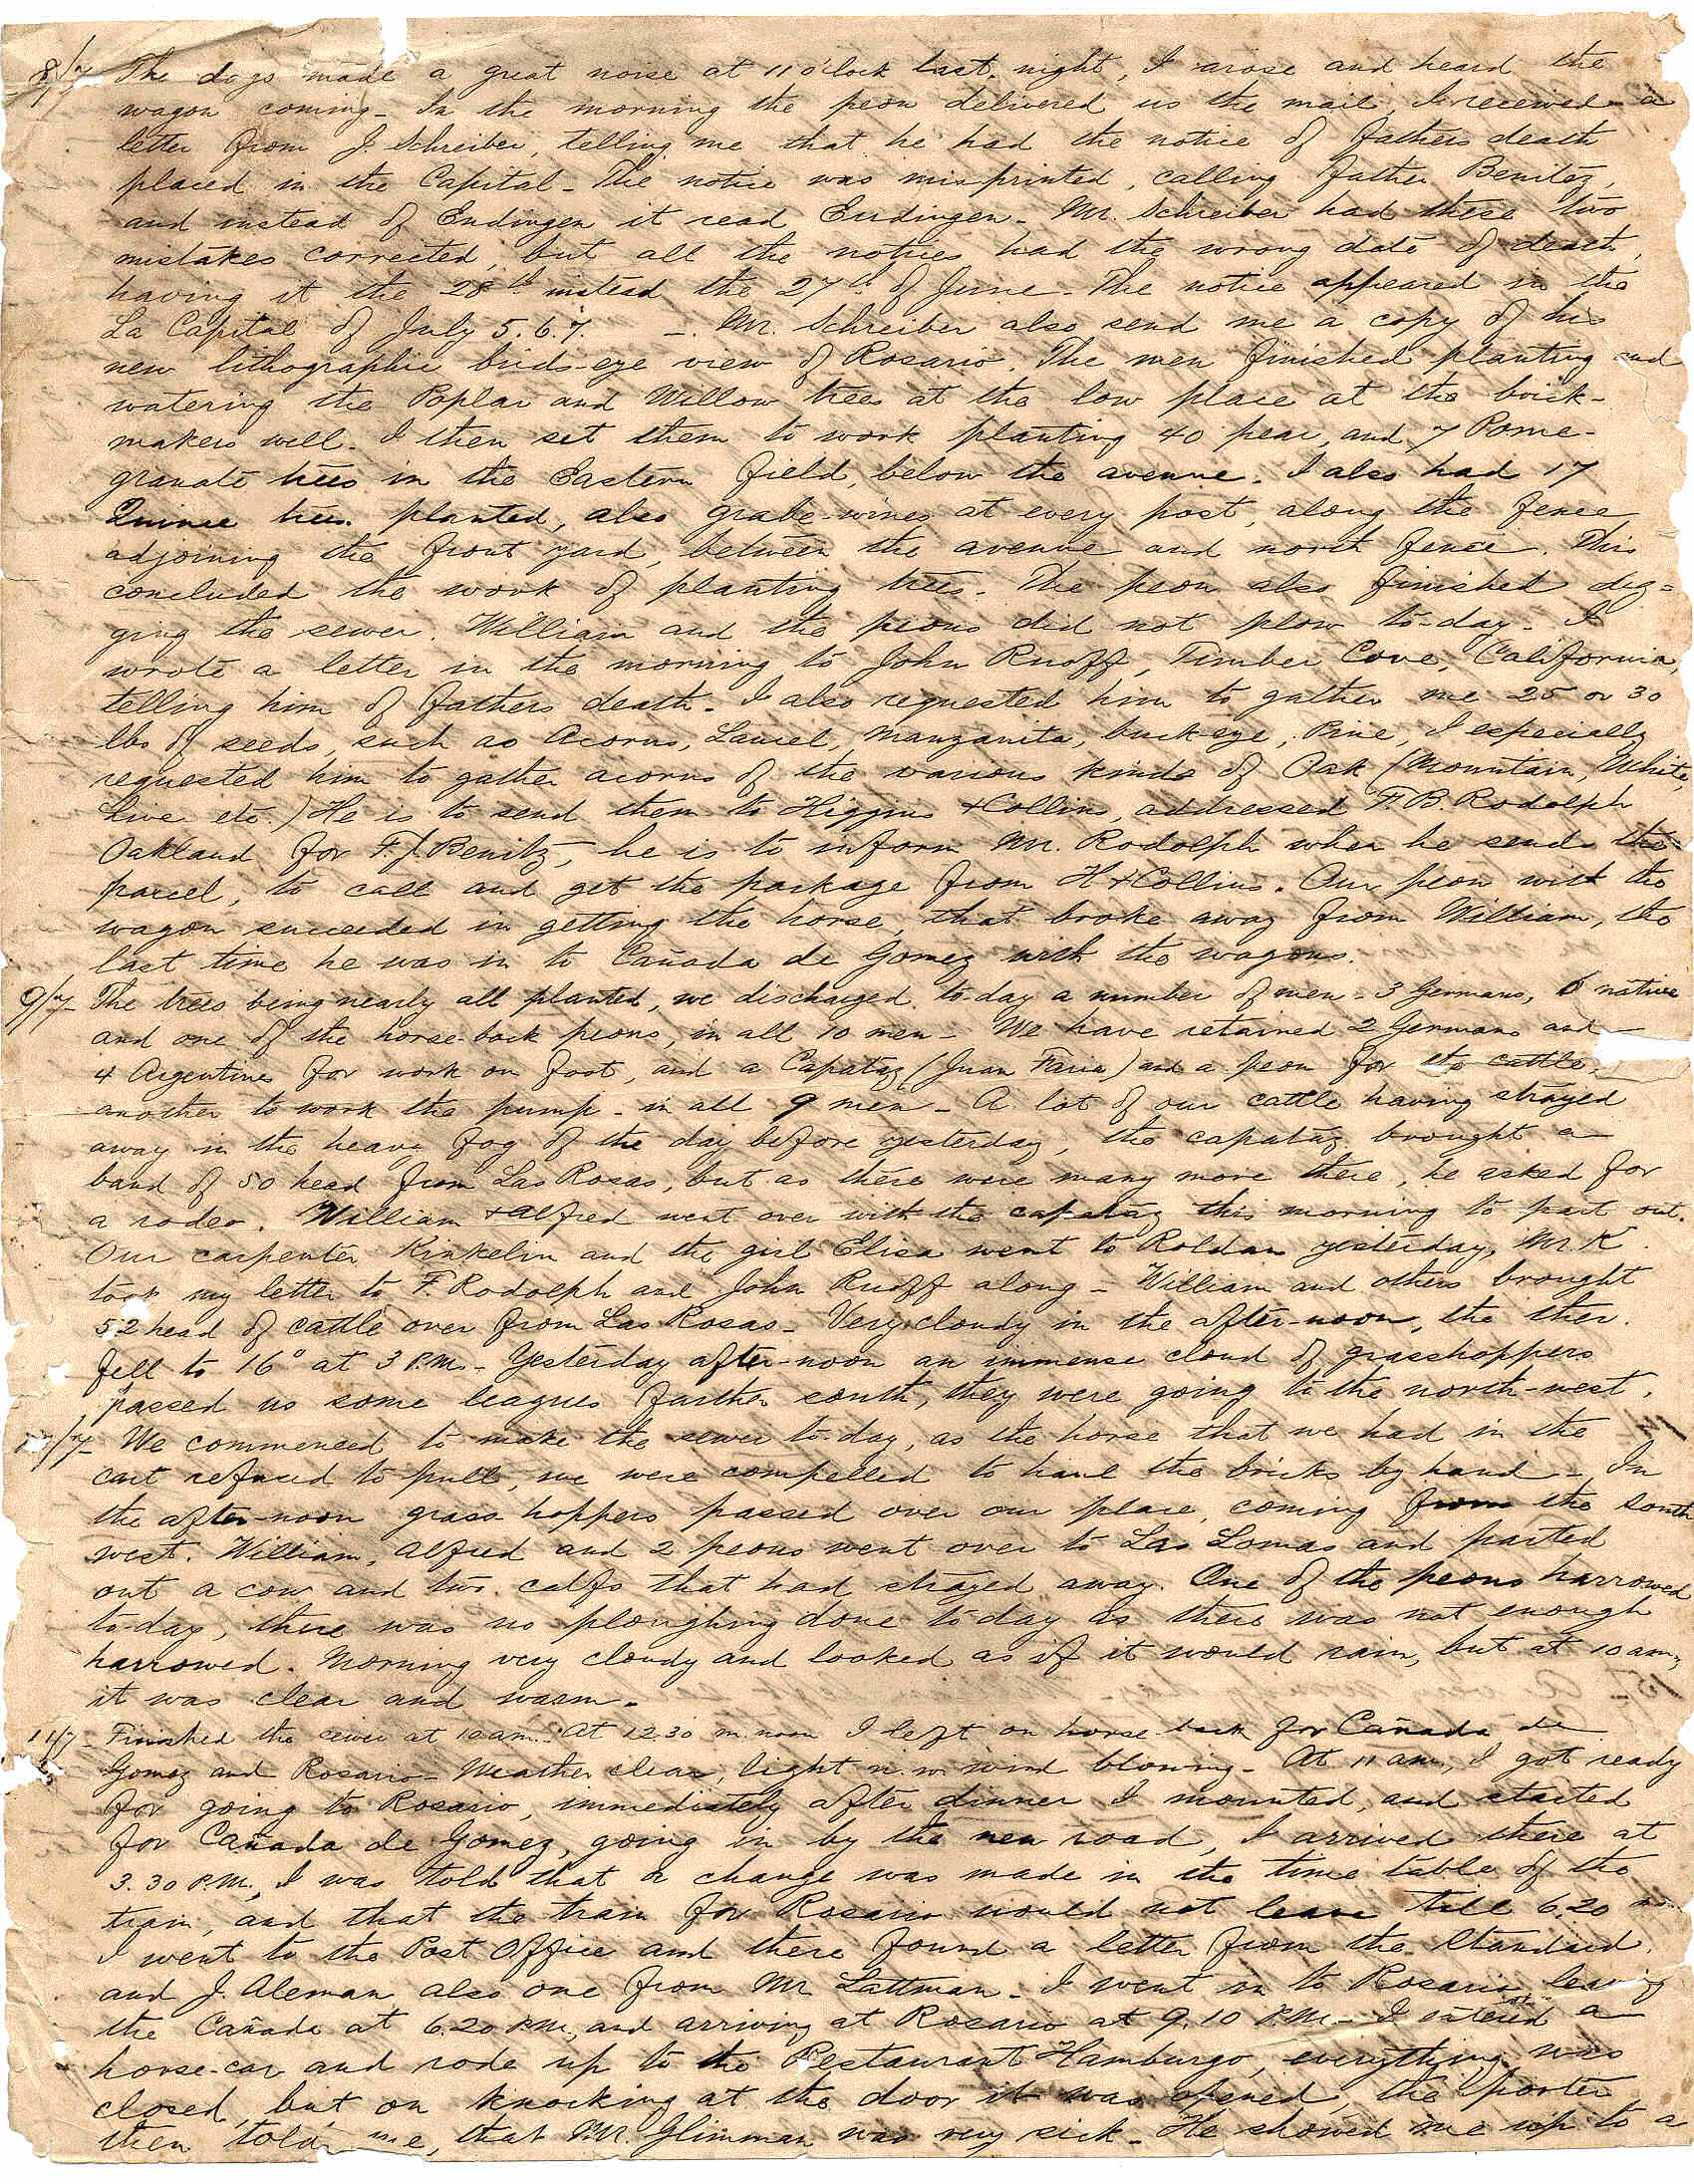 8/7 The dogs made a great noise at 11 o'clock last night, I arose and heard the
wagon coming - In the morning the peon delivered us the mail, I received a
letter from J. Schreiber, telling me that he had the notice of fathers death
placed in the Capital - The notice was misprinted, calling father Benitez,
and instead of Endingen it read Eudingen - Mr. Schreiber had these two
mistakes corrected, but all the notices had the wrong date of death,
having it the 28th instead the 27th of June - The notice appeared in the
La Capital of July 5. 6. 7. - Mr. Schreiber also send me a copy of his
new lithographic birds-eye view of Rosario. The men finished planting and
watering the Poplar and Willow trees at the low place at the brick-
makers well - I then set them to work planting 40 pear, and 7 Pome-
granate trees in the Eastern field, below the avenue. I also had 17
Quince trees planted, also grape-wines at every post, along the fence
adjoining the front yard, between the avenue and north fence. This
concluded the work of planting trees - The peon also finished dig=
ging the sewer. William and the peons did not plow to-day - I
wrote a letter in the morning to John Ruoff, Timber Cove, California,
telling him of fathers death - I also requested him to gather me 25 or 30
lbs of seeds, such as Acorns, Laurel, Manzanita, buck-eye, Pine, I especially
requested him to gather acorns of the various kinds of Oak (Mountain, White,
Live etc.) He is to send them to Higgins & Collins, addressed F. B. Rodolph
Oakland for F. J. Benitz, he is to inform Mr. Rodolph when he sends the
parcel, to call and get the package from H & Collins. Our peon with the
wagon succeeded in getting the horse, that broke away from William, the
last time he was in to Cañada de Gomez with the wagons.
9/7 - The trees being nearly all planted, we discharged to-day a number of men - 3 Germans, 6 native
and one of the horse-back peons, in all 10 men - We have retained 2 Germans and
4 Argentines for work on foot, and a Capataz (Juan Faria) and a peon for the cattle,
another to work the pump - in all 9 men - A lot of our cattle having strayed
away in the heavy fog of the day before yesterday, the capataz brought a
band of 50 head from Las Rosas, but as there were many more there, he asked for
a rodeo. William & Alfred went over with the capataz this morning to part out.
Our carpenter Kinkelin and the girl Elisa went to Roldan yesterday, Mr. K.
took my letter to F. Rodolph and John Ruoff along - William and others brought
52 head of cattle over from Las Rosas - Very cloudy in the after-noon, the ther.
fell to 16° at 3 P.M. - Yesterday after-noon an immense cloud of grasshoppers
passed us some leagues farther south, they were going to the north-west.
/7 - We commenced to make the sewer to-day, as the horse that we had in the
cart refused to pull, we were compelled to haul the bricks by hand - In
the after-noon grass hoppers passed over our place, coming from the south
west. William, Alfred and 2 peons went over to Las Lomas and parted
out a cow and two calfs that had strayed away. One of the peons harrowed
to-day, there was no ploughing done to-day as there was not enough
harrowed. Morning very cloudy and looked as if it would rain, but at 10 am,
it was clear and warm.
11/7 - Finished the sewer at 10 am. At 12.30 m noon I left on horse back for Cañada de
Gomez and Rosario - Weather clear, light n. w wind blowing - At 11 am, I got ready
for going to Rosario, immediately after dinner I mounted, and started
for Cañada de Gomez, going in by the new road, I arrived there at
3.30 P.M., I was told that a change was made in the time table of the
train, and that the train for Rosario would not leave till 6.20
I went to the Post Office and there found a letter from the Standard,
and J. Aleman also one from Mr Lattman - I went in to Rosario leaving
the Cañada at 6.20 P.M., and arriving at Rosario at 9.10 P.M. - I entered a
horse-car and rode up to the Restaurant Hamburgo, everything was
closed, but on knocking at the door it was opened, the porter
then told me, that Mr. Glimman was very sick - He showed me up to a